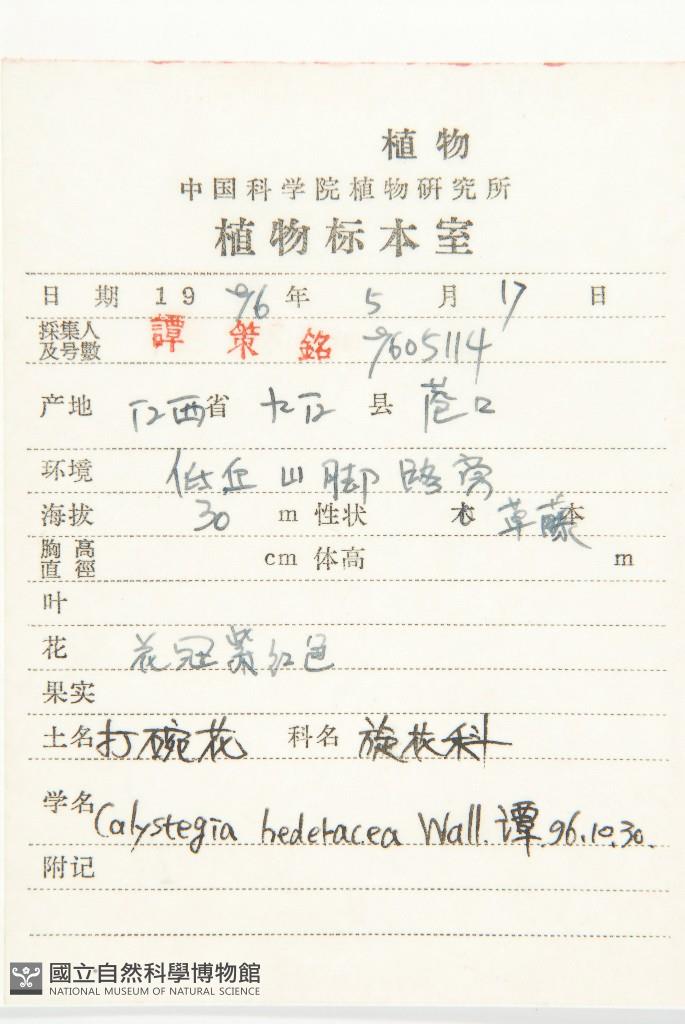 植物
中国科学院植物研究所
植物标本室
日期 1996年 5月 17日
採集人及号數 譚策銘 9605114
产地 江西省 九江县 巷口
环境 低丘山脚路旁
海拔 30 m 性状 草藤 本
胸高直徑 cm 体高 m
叶
花 花冠紫红色
果实
土名 打碗花 科名 旋花科
学名 Calystegia hederacea Wall. 谭.96.10.30.
附记
國立自然科學博物館
NATIONAL MUSEUM OF NATURAL SCIENCE